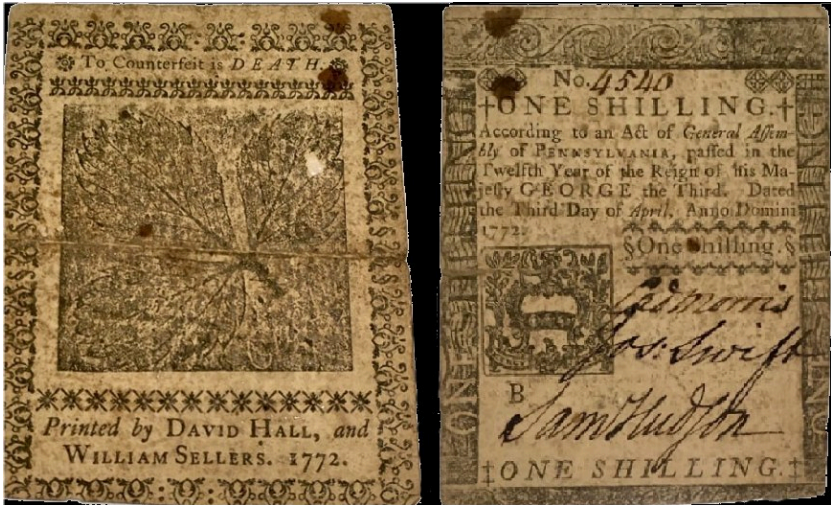 To Counterfeit is DEATH.
Printed by DAVID HALL, and
WILLIAM SELLERS. 1772.
ONE SHILLING
No. 4540
ONE SHILLING.
According to an Act of General Assem-
bly of PENNSYLVANIA, passed in the
Twelfth Year of the Reign of his Ma-
jesty GEORGE the Third. Dated
the Third Day of April, Anno Domini
1772.
§One Shilling.§
Morris
Jos. Swift
B
Sam Hudson
‡ONE SHILLING.‡